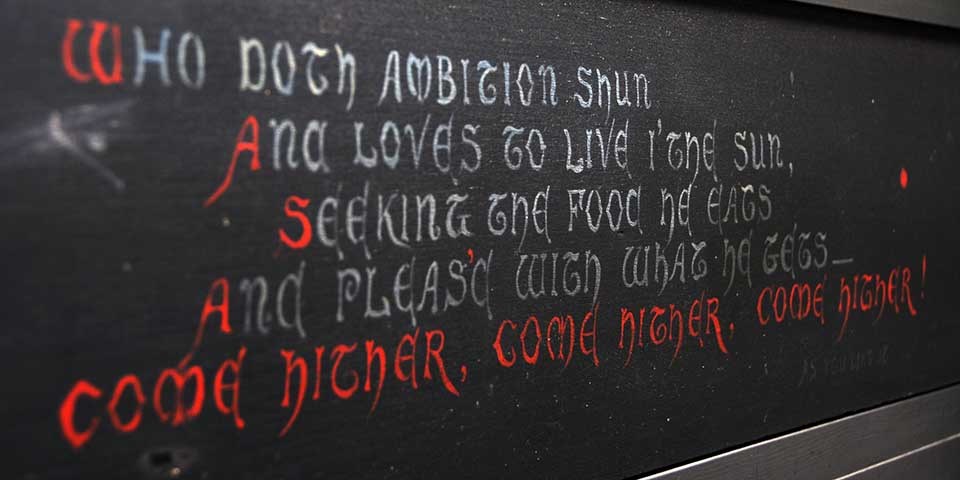 Who doth ambition shun
And loves to live i'the sun,
Seeking the food he eats
And pleas'd with what he gets_
Come hither, come hither, come hither!
AS YOU LIKE IT